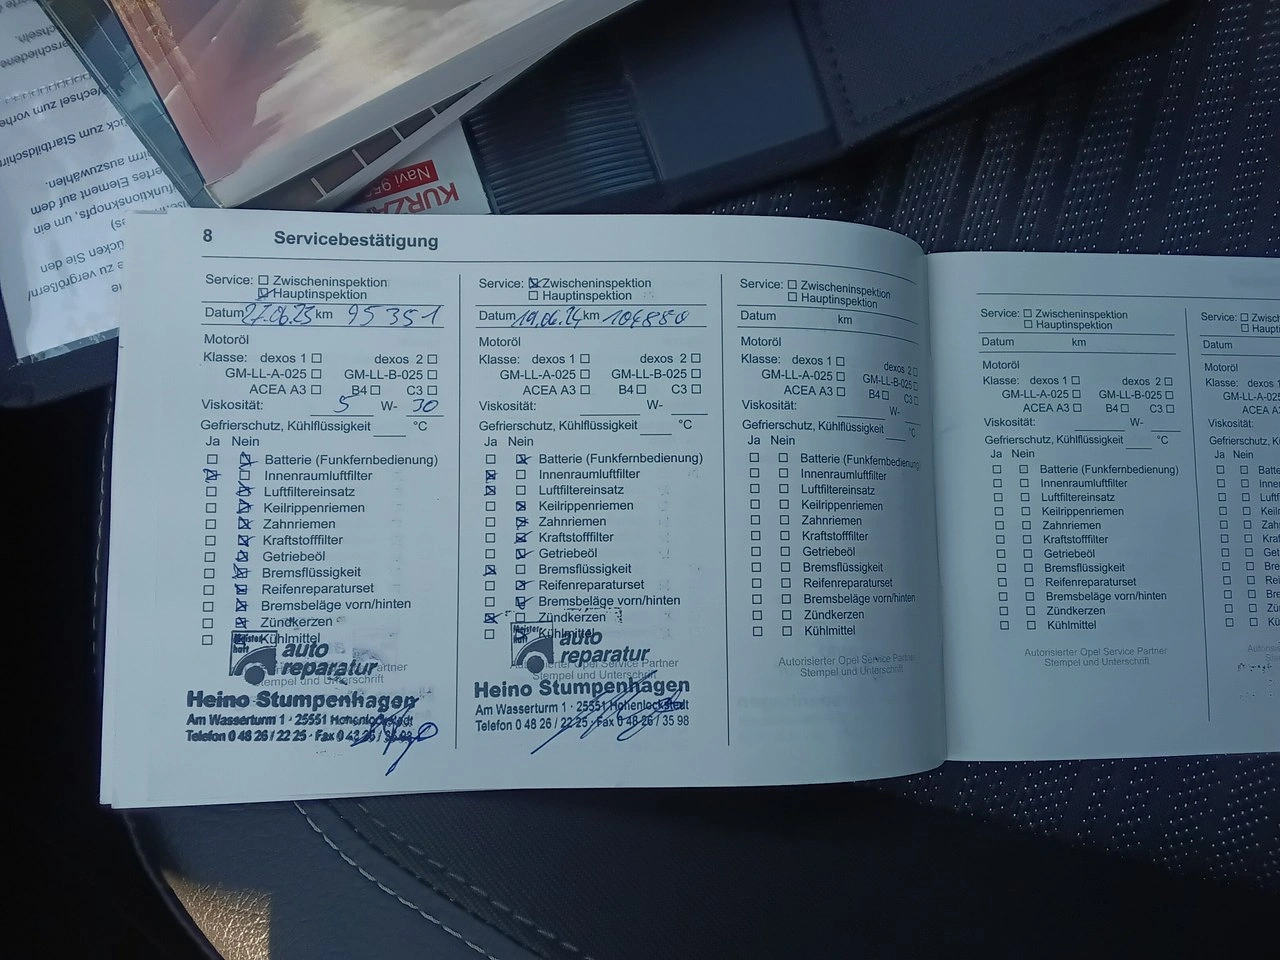 8 Servicebestätigung
Service: ☐ Zwischeninspektion
☒ Hauptinspektion
Datum 27.06.23 km 95351
Motoröl
Klasse: dexos 1 ☐ dexos 2 ☐
GM-LL-A-025 ☐ GM-LL-B-025 ☐
ACEA A3 ☐ B4 ☐ C3 ☐
Viskosität: 5 W- 30
Gefrierschutz, Kühlflüssigkeit ____ °C
Ja Nein
☐ ☒ Batterie (Funkfernbedienung)
☒ ☐ Innenraumluftfilter
☐ ☒ Luftfiltereinsatz
☐ ☒ Keilrippenriemen
☐ ☒ Zahnriemen
☐ ☒ Kraftstofffilter
☐ ☒ Getriebeöl
☐ ☒ Bremsflüssigkeit
☐ ☒ Reifenreparaturset
☐ ☒ Bremsbeläge vorn/hinten
☐ ☒ Zündkerzen
☐ ☒ Kühlmittel
Meister haft
auto
reparatur
Partner
Stempel und Unterschrift
Heino Stumpenhagen
Am Wasserturm 1 · 25551 Hohenlockstedt
Telefon 0 48 26 / 22 25 · Fax
Service: ☒ Zwischeninspektion
☐ Hauptinspektion
Datum 19.06.24 km 104880
Motoröl
Klasse: dexos 1 ☐ dexos 2 ☐
GM-LL-A-025 ☐ GM-LL-B-025 ☐
ACEA A3 ☐ B4 ☐ C3 ☐
Viskosität: ____ W- ____
Gefrierschutz, Kühlflüssigkeit ____ °C
Ja Nein
☐ ☒ Batterie (Funkfernbedienung)
☒ ☐ Innenraumluftfilter
☒ ☐ Luftfiltereinsatz
☐ ☒ Keilrippenriemen
☐ ☒ Zahnriemen
☐ ☒ Kraftstofffilter
☐ ☒ Getriebeöl
☒ ☐ Bremsflüssigkeit
☐ ☒ Reifenreparaturset
☐ ☒ Bremsbeläge vorn/hinten
☒ ☐ Zündkerzen
☐ ☒ Kühlmittel
Meister haft
auto
reparatur
Autorisierter Opel Service Partner
Stempel und Unterschrift
Heino Stumpenhagen
Am Wasserturm 1 · 25551 Hohenlockstedt
Telefon 0 48 26 / 22 25 · Fax 0 48 26 / 35 98
Service: ☐ Zwischeninspektion
☐ Hauptinspektion
Datum km
Motoröl
Klasse: dexos 1 ☐ dexos 2 ☐
GM-LL-A-025 ☐ GM-LL-B-025 ☐
ACEA A3 ☐ B4 ☐ C3 ☐
Viskosität: ____ W- ____
Gefrierschutz, Kühlflüssigkeit ____ °C
Ja Nein
☐ ☐ Batterie (Funkfernbedienung)
☐ ☐ Innenraumluftfilter
☐ ☐ Luftfiltereinsatz
☐ ☐ Keilrippenriemen
☐ ☐ Zahnriemen
☐ ☐ Kraftstofffilter
☐ ☐ Getriebeöl
☐ ☐ Bremsflüssigkeit
☐ ☐ Reifenreparaturset
☐ ☐ Bremsbeläge vorn/hinten
☐ ☐ Zündkerzen
☐ ☐ Kühlmittel
Autorisierter Opel Service Partner
Stempel und Unterschrift
Service: ☐ Zwischeninspektion
☐ Hauptinspektion
Datum km
Motoröl
Klasse: dexos 1 ☐ dexos 2 ☐
GM-LL-A-025 ☐ GM-LL-B-025 ☐
ACEA A3 ☐ B4 ☐ C3 ☐
Viskosität: ____ W- ____
Gefrierschutz, Kühlflüssigkeit ____ °C
Ja Nein
☐ ☐ Batterie (Funkfernbedienung)
☐ ☐ Innenraumluftfilter
☐ ☐ Luftfiltereinsatz
☐ ☐ Keilrippenriemen
☐ ☐ Zahnriemen
☐ ☐ Kraftstofffilter
☐ ☐ Getriebeöl
☐ ☐ Bremsflüssigkeit
☐ ☐ Reifenreparaturset
☐ ☐ Bremsbeläge vorn/hinten
☐ ☐ Zündkerzen
☐ ☐ Kühlmittel
Autorisierter Opel Service Partner
Stempel und Unterschrift
Service: ☐
☐
Datum
Motoröl
Klasse:
Viskosität:
Ja Nein
KURZ
Navi
zum Startbildschirm
auszuwählen.
Element auf dem
um ein